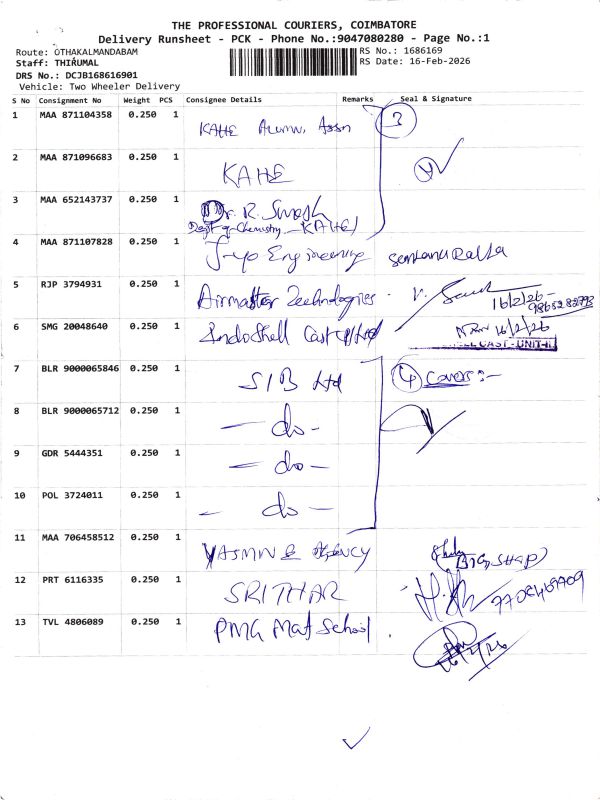 THE PROFESSIONAL COURIERS, COIMBATORE
Delivery Runsheet - PCK - Phone No.:9047080280 - Page No.:1
Route: OTHAKALMANDABAM RS No.: 1686169
Staff: THIRUMAL RS Date: 16-Feb-2026
DRS No.: DCJB168616901
Vehicle: Two Wheeler Delivery
S No Consignment No Weight PCS Consignee Details Remarks Seal & Signature
1 MAA 871104358 0.250 1 KAHE Alumni Assn 3
2 MAA 871096683 0.250 1 KAHE
3 MAA 652143737 0.250 1 Dr. R. Suresh
Dept of Chemistry - KAHE
4 MAA 871107828 0.250 1 J-yo Engineering
5 RJP 3794931 0.250 1 Airmaster Technologies 16/2/26
6 SMG 20048640 0.250 1 IndoShell Cast 16/2/26
CAST - UNIT-II
7 BLR 9000065846 0.250 1 SIB Ltd 4 Covers:-
8 BLR 9000065712 0.250 1 - do -
9 GDR 5444351 0.250 1 - do -
10 POL 3724011 0.250 1 - do -
11 MAA 706458512 0.250 1 YASMIN E Agency
12 PRT 6116335 0.250 1 SRITHAR
13 TVL 4806089 0.250 1 PMG Mat School